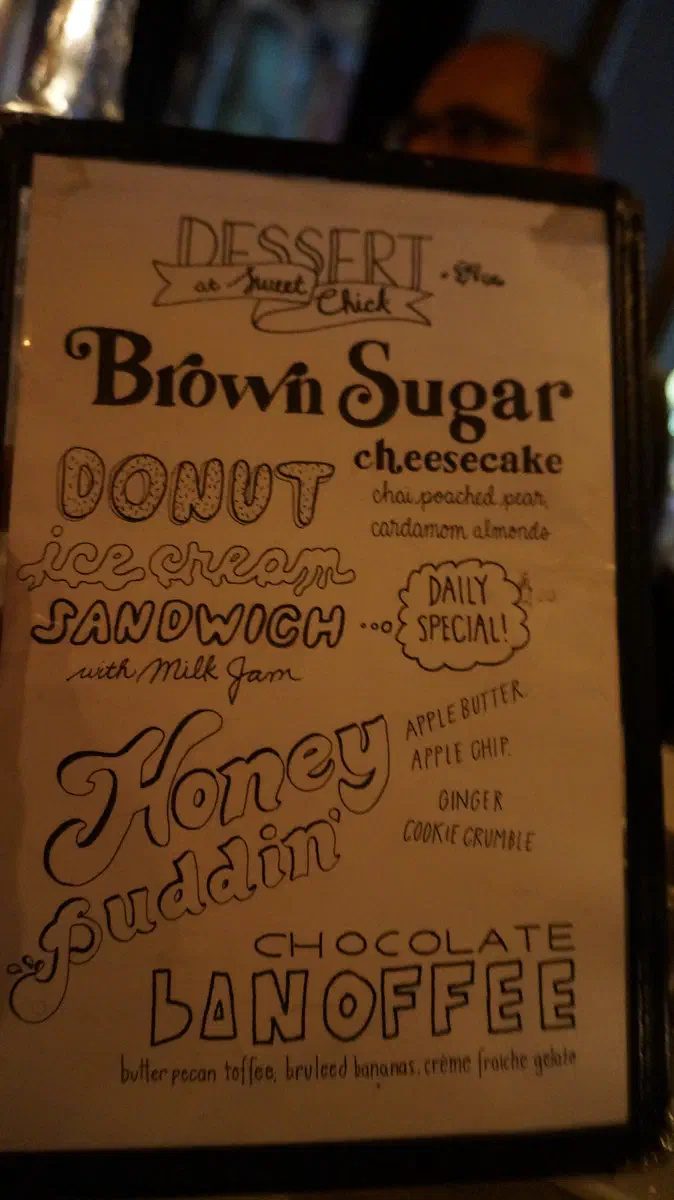 DESSERT
at Sweet
Chick
Brown Sugar
cheesecake
chai poached pear,
cardamom almonds
DONUT
ice cream
SANDWICH
with Milk Jam
...
DAILY
SPECIAL!
Honey
puddin'
APPLE BUTTER
APPLE CHIP.
GINGER
COOKIE CRUMBLE
CHOCOLATE
bANOFFEE
butter pecan toffee, bruleed bananas, crème fraiche gelato